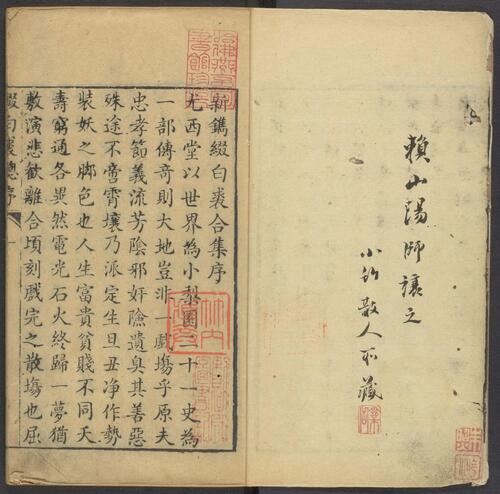 賴山陽師讓之
小竹散人所藏
新鐫綴白裘合集序
尤西堂以世界為小梨園二十一史為
一部傳奇則大地豈非一戲塲乎原夫
忠孝節義流芳陰邪奸險遺臭其善惡
殊途不啻霄壤乃派定生旦丑净作勢
裝妖之脚色也人生富貴貧賤不同夭
壽窮通各異然電光石火終歸一夢猶
敷演悲歡離合頃刻戲完之散塲也屈
綴白裘總序 一